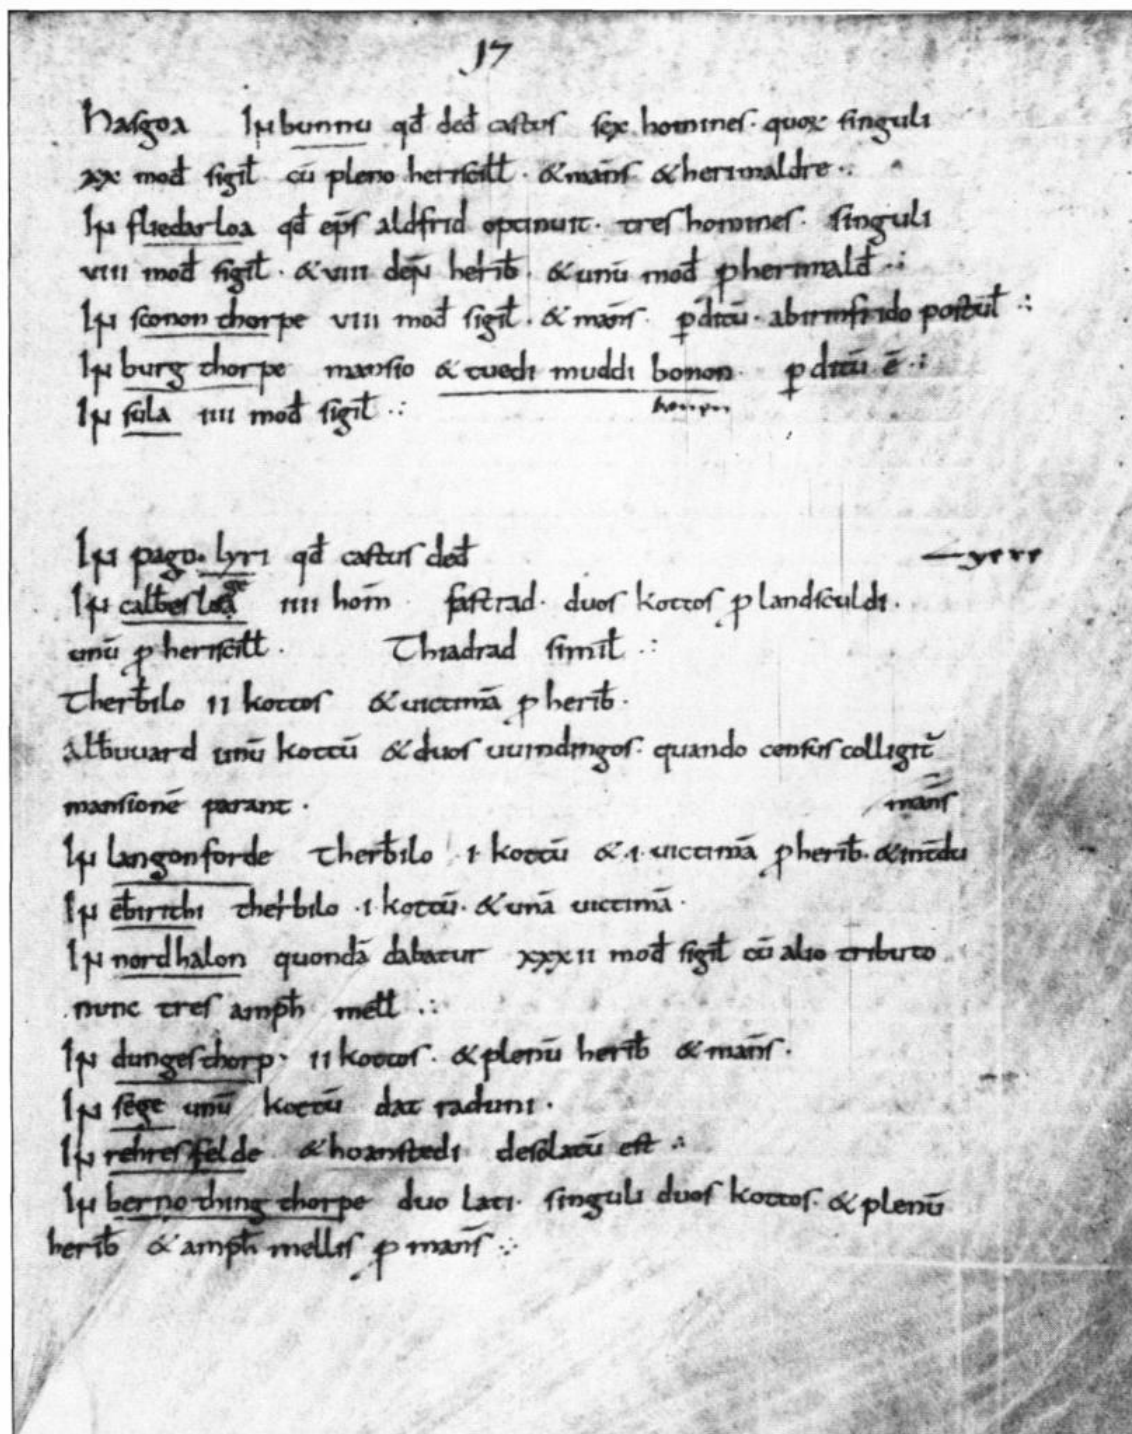 17
hasgoa In bunnu qđ deđ castus sex homines · quoꝝ singuli
xx mođ sigił cū pleno heriscilł · & man̄s & herimaldre ·:
In fliedarloa qđ ep̄s aldfrid optinuit · tres homines · singuli
viii mođ sigił · & viii deꞃ̄ heriƀ · & unū mođ ꝓ herimalđ ·:
In sconon thorpe viii mođ sigił · & man̄s · ꝑditū · ab irinfrido postuł ·:
In burg thorpe mansio & tuedi muddi bonon · ꝑ ditū ē ·:
In sula iiii mođ sigił ·:
bonon
In pago · lyri qđ castus deđ
In calƀesloa iiii hom̄ · fastrad · duos kottos ꝓ landsculdi ·
unū ꝓ heriscilł · Thiadrad simił ·:
Therƀilo ii kottos & uictimā ꝓ heriƀ ·
Alƀuuard unū kottū & duos uuindingos · quando census colligit᷑
mansionē parant · man̄s
In langonforde therƀilo · i · kottū & · i · uictimā ꝓ heriƀ ·
In eƀirithi therƀilo · i · kottū · & unā uictimā ·
In nordhalon quondā dabatur xxxii mođ sigił cū alio tributo
nunc tres amp̄h melł ·:
In dungesthorp · ii kottos · & plenū heriƀ & man̄s ·
In sege unū kottū dat raduni ·
In rehresfelde & hoanstedi desolatū est ·:
In bernothingthorpe duo lati · singuli duos kottos · & plenū
heriƀ & amp̄h mellis ꝓ man̄s ·: